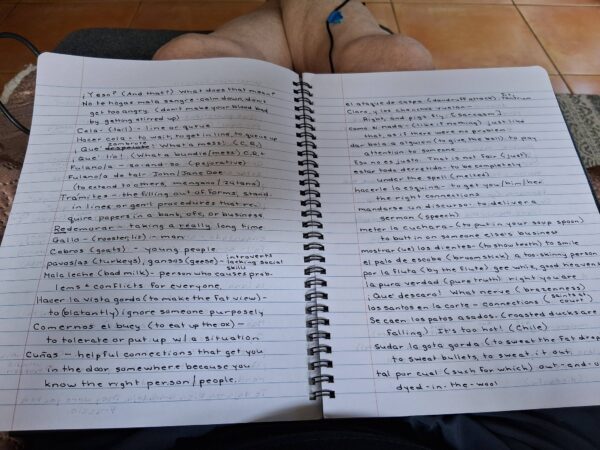 ¿Yeso? (And that?) What does that mean?
No te hagas mala sangre - calm down, don't
get too angry. (don't make your blood bad
by getting stirred up)
Cola - (tail) - line or queue
Hacer cola - to wait, to get in line, to queue up
sombrero
¡Que What a mess! (C.R.)
¡Qué lío! (What a bundle/mess) C.R.
Fulano/a - so-and-so (pejorative)
Fulano/a de tal - John/Jane Doe
(to extend to others, mengano/zutano)
Trámites - the filling out of forms, stand.
in lines or gen'l procedures that re-
quire papers in a bank, ofc, or business.
Redemorar - taking a really long time
Gallo - (rooster, lit) - man
Cabros (goats) - young people
pavos/as (turkeys), gansos (geese) - introverts
lacking social
skill
Mala leche (bad milk) - person who causes prob.
lems & conflicts for everyone
Hacer la vista gorda (to make the fat view) -
to (blatantly) ignore someone purposely
Comernos el buey (to eat up the ox) -
to tolerate or put up w/ a situation
Cuñas - helpful connections that get you
in the door somewhere because you
know the right person/people.
el ataque de caspa (dandruff attack), fit, tantrum
Claro, y los chanchos vuelan -
Right, and pigs fly. (sarcasm)
Como si nada - (like if nothing) just like
that, as if there were no problem
dar bola a alguien (to give the ball) to pay
attention to someone
Eso no es justo. That is not fair (just).
estar todo derretido - to be completely
under the spell (melted)
hacerle la esquina - to get you/him/her
the right connections
mandarse un discurso - to deliver a
sermon (speech)
meter la cuchara - (to put in your soup spoon)
to butt in on someone else's business
mostrar (ue) los dientes - (to show teeth) to smile
el palo de escoba (broomstick) a too-skinny person
por la flauta (by the flute) gee whiz, good heavens
la pura verdad (pure truth) right you are
¡Que descaro! What nerve! (brazenness)
los santos en la corte - connections (saints at
court)
Se caen los patos asados. (roasted ducks are
falling.) It's too hot! (Chile)
sudar la gota gorda (to sweat the fat drop
to sweat bullets, to sweat it out,
tal por cual (such for which) out-and-o
dyed-in-the-wool